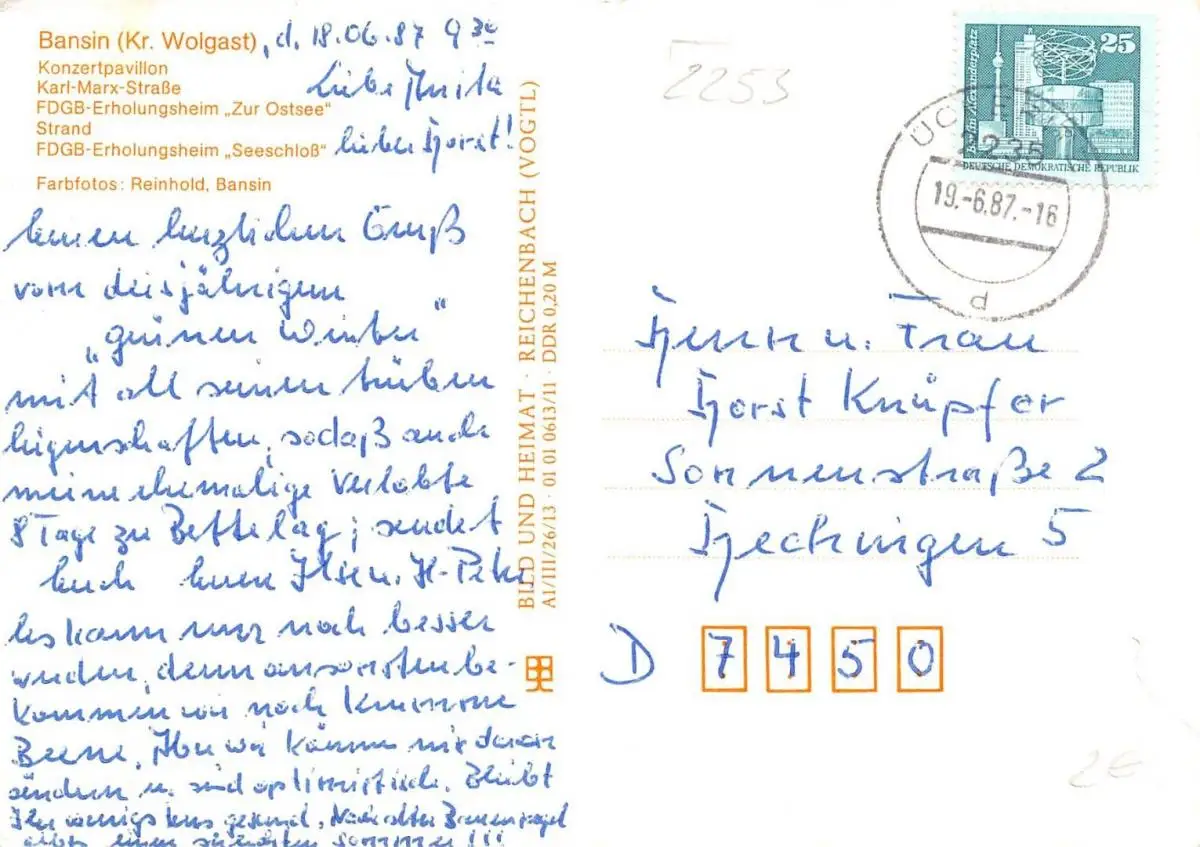 Bansin (Kr. Wolgast), d. 18.06.87 9 30
Konzertpavillon
Karl-Marx-Straße
FDGB-Erholungsheim „Zur Ostsee“
Strand
FDGB-Erholungsheim „Seeschloß“
Farbfotos: Reinhold, Bansin
Liebe Anita
lieber Horst!
einen herzlichen Gruß
vom diesjährigen
„grünen Winter“
mit all seinen trüben
Eigenschaften, sodaß auch
meine ehemalige Verlobte
8 Tage zu Bette lag; sendet
Euch Eure Ilse u. H-Peter
Es kann nur noch besser
werden, denn ansonsten be-
kommen wir noch krumme
Beene. Aber wir können nix daran
ändern u. sind optimistisch. Bleibt
Ihr wenigstens gesund. Nach alter Bauernregel
gibts einen schönen Sommer!!!
BILD UND HEIMAT · REICHENBACH (VOGTL)
A1/III/26/13 · 01 01 0613/11 · DDR 0,20 M
2253
25
Berlin Alexanderplatz
DEUTSCHE DEMOKRATISCHE REPUBLIK
2235
19.-6.87.-16
d
Herrn u. Frau
Horst Knüpfer
Sonnenstraße 2
Hechingen 5
D 7450
2€